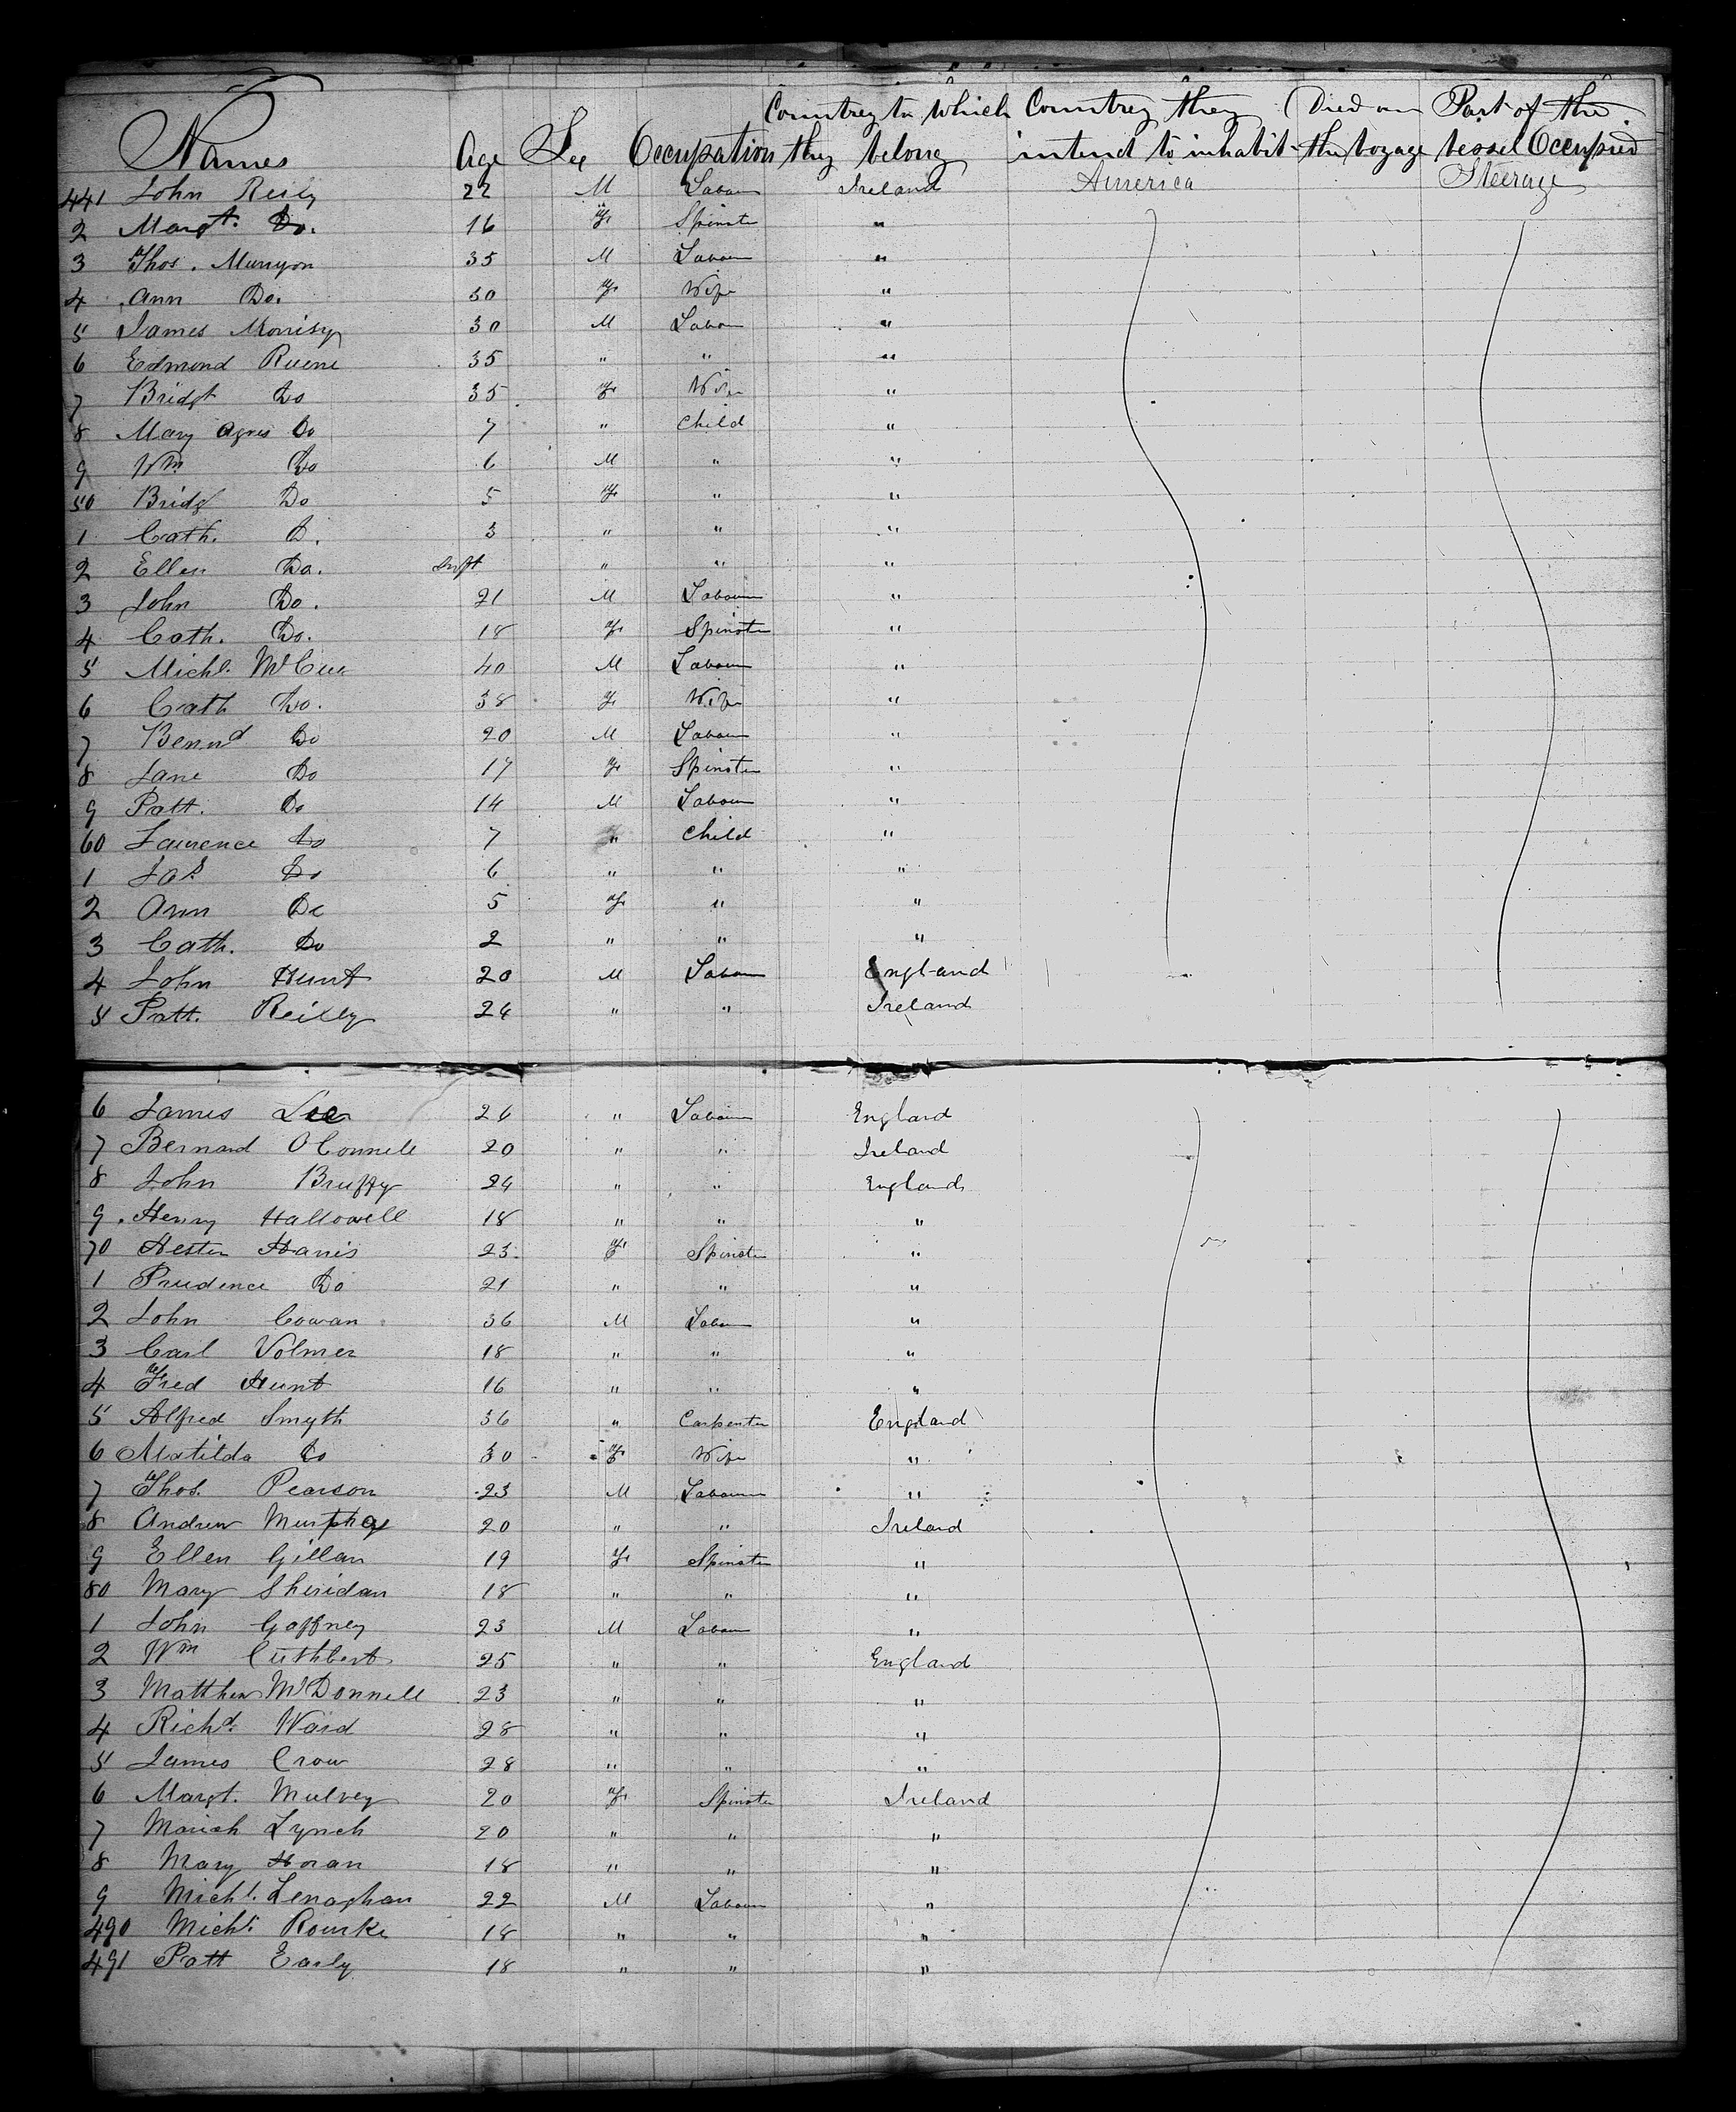 Names Age Sex Occupation Country to which they belong Country they intend to inhabit Died on the voyage Part of the vessel Occupied
441 John Reily 22 M Labour Ireland America Steerage
2 Margt. Do. 16 F Spinster "
3 Thos. Munyon 35 M Labour "
4 Ann Do. 30 F Wife "
5 James Morrisy 30 M Labour "
6 Edmond Ruene 35 " " "
7 Bridgt Do 35 F Wife "
8 Mary Agnes Do 7 " Child "
9 Wm Do 6 M " "
50 Bridg Do 5 F " "
1 Cath. D. 3 " " "
2 Ellen Do. Inft " " "
3 John Do. 21 M Labour "
4 Cath. Do. 18 F Spinster "
5 Michl. McCue 40 M Labour "
6 Cath Do. 38 F Wife "
7 Bernnd Do 20 M Labour "
8 Jane Do 17 F Spinster "
9 Patt. Do 14 M Labour "
60 Laurence Do 7 " Child "
1 Jas Do 6 " " "
2 Ann Do 5 F " "
3 Cath. Do 2 " " "
4 John Hunt 20 M Labour England
5 Patt. Reilly 24 " " Ireland
6 James Lee 26 " Labour England
7 Bernard OConnell 20 " " Ireland
8 John Bruffy 24 " " England
9 Henry Hallowell 18 " " "
70 Hester Harris 23 F Spinster "
1 Prudence Do 21 " " "
2 John Cowan 36 M Labour "
3 Carl Volmer 18 " " "
4 Fred Hunt 16 " " "
5 Alfred Smyth 36 " Carpenter England
6 Matilda Do 30 F Wife "
7 Thos. Pearson 23 M Labour "
8 Andrew Murphy 20 " " Ireland
9 Ellen Gillan 19 F Spinster "
80 Mary Sheridan 18 " " "
1 John Gaffney 23 M Labour "
2 Wm Cuthbert 25 " " England
3 Matthew McDonnell 23 " " "
4 Richd. Ward 28 " " "
5 James Crow 28 " " "
6 Margt. Mulvey 20 F Spinster Ireland
7 Mariah Lynch 20 " " "
8 Mary Horan 18 " " "
9 Michl. Lenaghan 22 M Labour "
490 Michl. Rourke 18 " " "
491 Patt Early 18 " " "